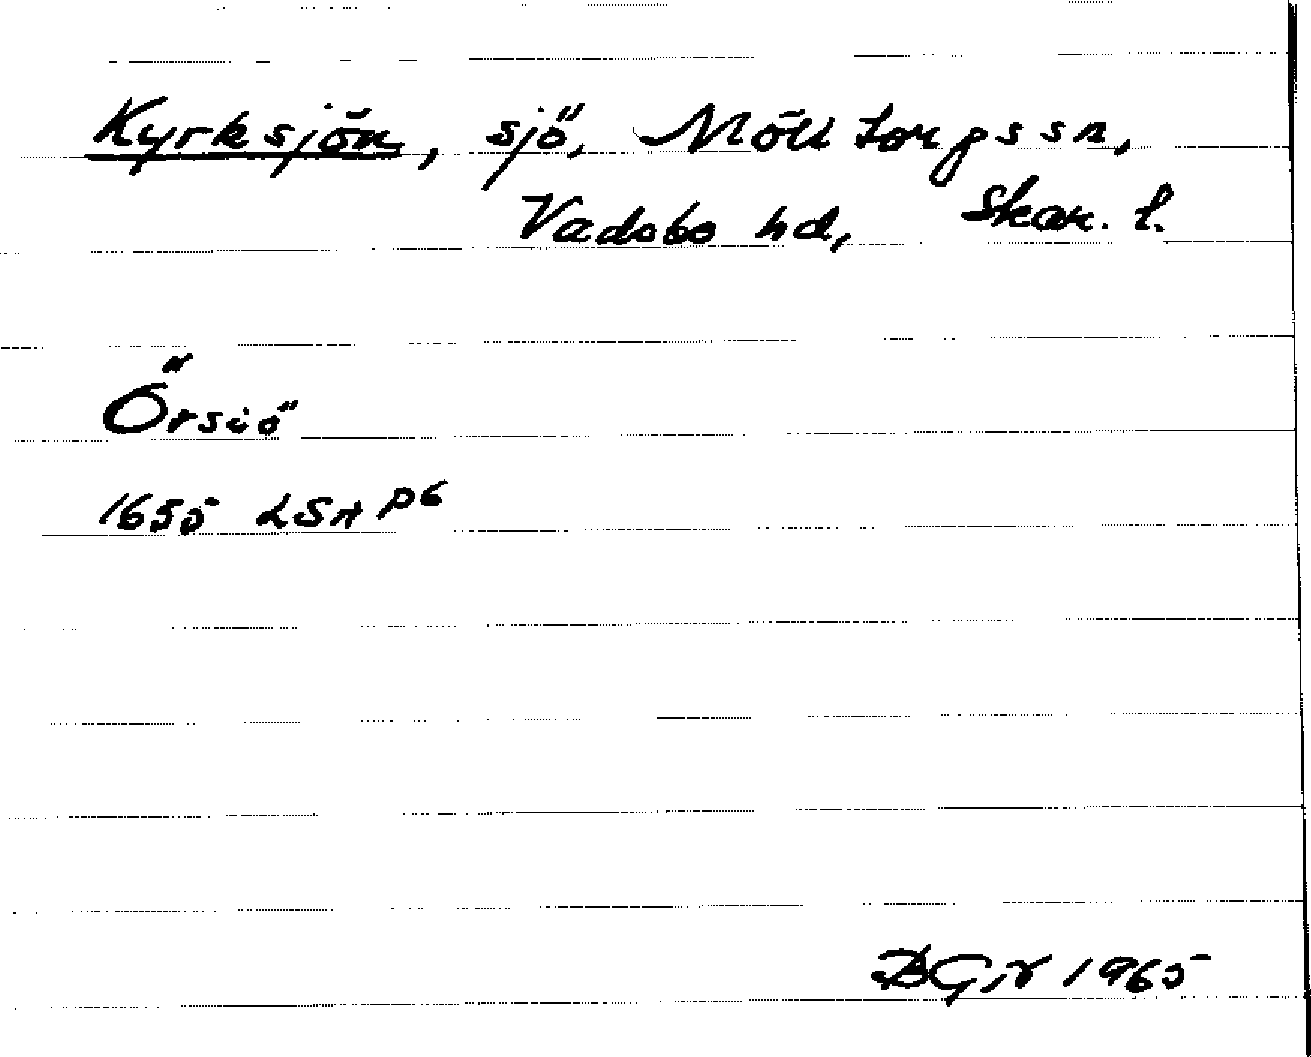 Kyrksjön, sjö, Mölltorps sn,
Vadsbo hd, Skar. l.
Örsiö
1655 LSA P6
BGN 1965